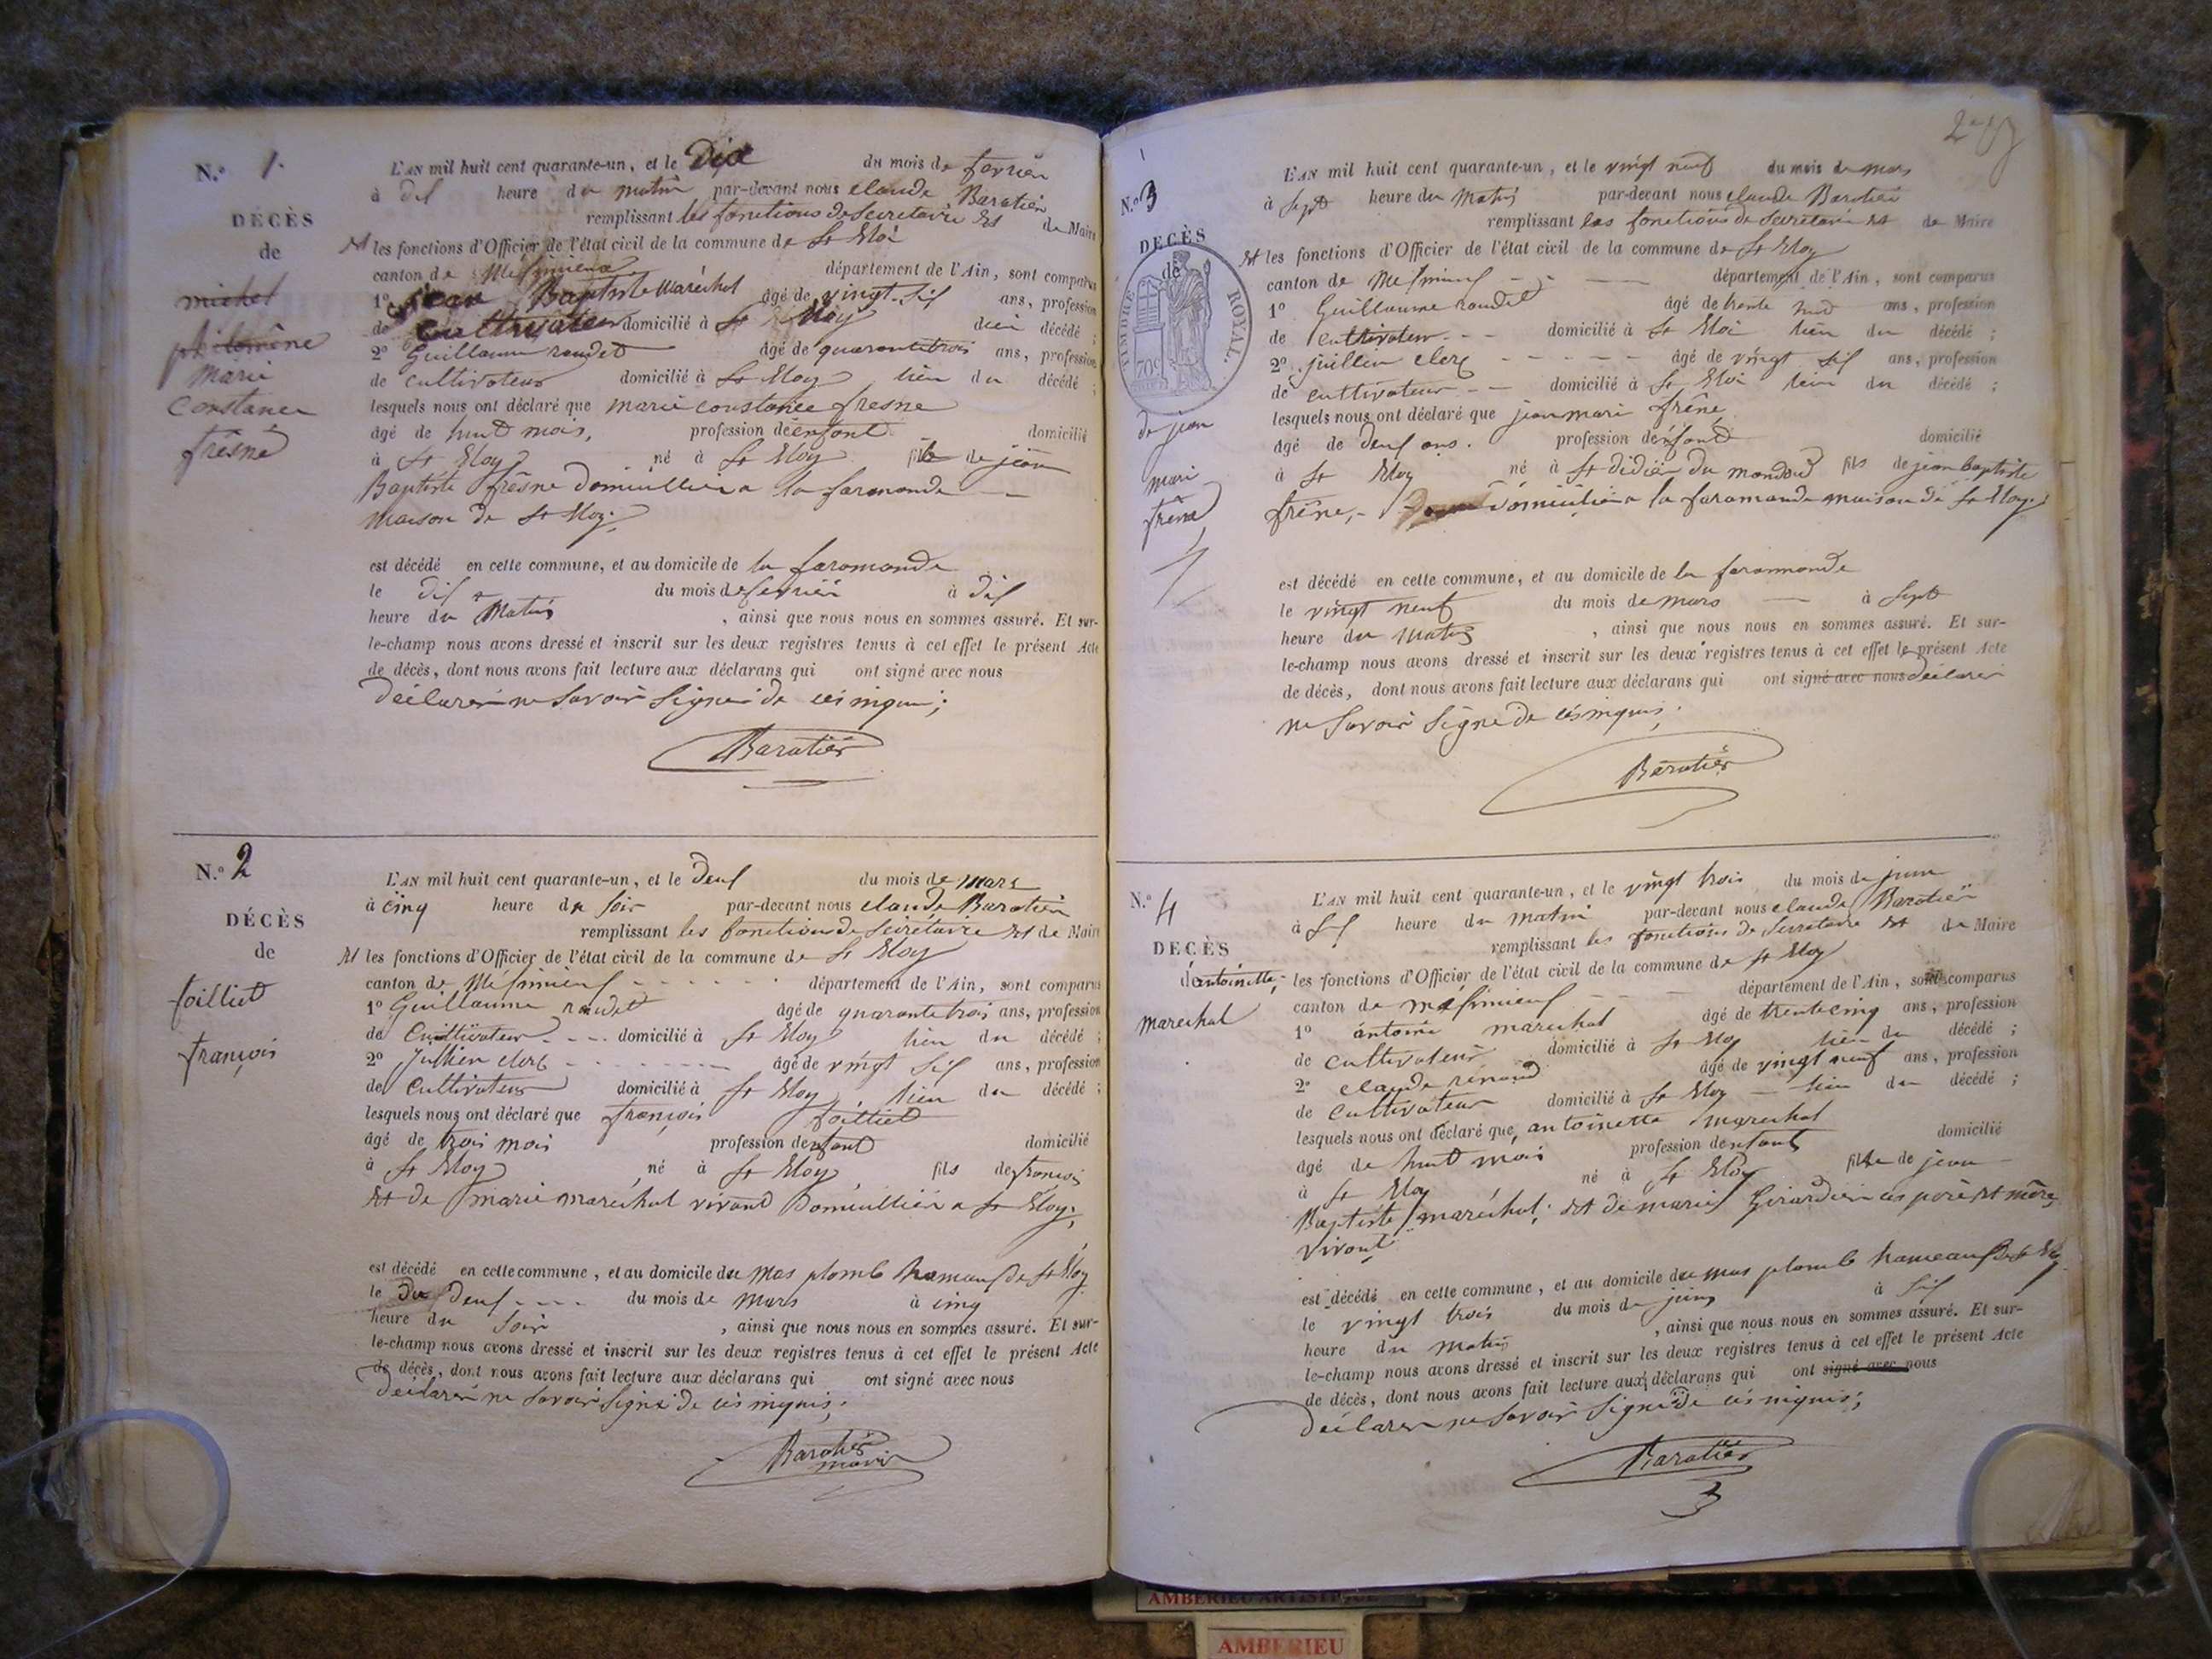 N.º 1.
DÉCÈS
de
michel
philomène
marie
constance
frêsne
L'AN mil huit cent quarante-un, et le Dix du mois de fevrier
à dix heure du matin par-devant nous claude Baratier
remplissant les fonctions de secretaire et de Maire
et les fonctions d'Officier de l'état civil de la commune de St Eloi
canton de Méximieux département de l'Ain, sont comparus
1º jean Baptiste Maréchal âgé de vingt-six ans, profession
de cultivateur domicilié à St Eloy lien décédé ;
2º Guillaume roudet âgé de quarante trois ans, profession
de cultivateur domicilié à St Eloy lien du décédé ;
lesquels nous ont déclaré que marie constance fresne
âgé de huit mois, profession de enfant domicilié
à St Eloy né à St Eloy fille de jean
Baptiste frêsne domicillier a la faramande
maison de St Eloy.
est décédé en cette commune, et au domicile de la faramande
le dix du mois de fevrier à dix
heure du Matin , ainsi que nous nous en sommes assuré. Et sur-
le-champ nous avons dressé et inscrit sur les deux registres tenus à cet effet le présent Acte
de décès, dont nous avons fait lecture aux déclarans qui ont signé avec nous
déclarer ne savoir signer de ces inquis ;
Baratier
N.º 2
DÉCÈS
de
foilliet
françois
L'AN mil huit cent quarante-un, et le deux du mois de mars
à cinq heure du soir par-devant nous claude Baratier
remplissant les fonctions de secretaire et de Maire
et les fonctions d'Officier de l'état civil de la commune de St Eloy
canton de Méximieux département de l'Ain, sont comparus
1º Guillaume roudet âgé de quarante trois ans, profession
de Cultivateur domicilié à St Eloy lien du décédé ;
2º Jullien clerc âgé de vingt six ans, profession
de Cultivateur domicilié à St Eloy lien du décédé ;
lesquels nous ont déclaré que françois foilliet
âgé de trois mois profession de enfant domicilié
à St Eloy né à St Eloy fils de françois
et de marie maréchal vivant Domicillier a St Eloy ;
est décédé en cette commune, et au domicile du Mas plomb hameau de St Eloy
le Du Deux du mois de Mars à cinq
heure du soir , ainsi que nous nous en sommes assuré. Et sur-
le-champ nous avons dressé et inscrit sur les deux registres tenus à cet effet le présent Acte
de décès, dont nous avons fait lecture aux déclarans qui ont signé avec nous
déclarer ne savoir signé de ces inquis ;
Baratier
N.º 3
DECÈS
de
TIMBRE ROYAL.
70c
de jean
mari
frêne
L'AN mil huit cent quarante-un, et le vingt neuf du mois de mars
à sept heure du Matin par-devant nous claude Baratier
remplissant les fonctions de secretaire et de Maire
et les fonctions d'Officier de l'état civil de la commune de St Eloy
canton de Meximieux département de l'Ain, sont comparus
1º Guillaume roudet âgé de trente ans, profession
de Cultivateur domicilié à St Eloi lien du décédé ;
2º jullien clerc âgé de vingt six ans, profession
de cultivateur domicilié à St Eloi lein du décédé ;
lesquels nous ont déclaré que jean mari frêne
âgé de deux ans. profession de enfant domicilié
à St Eloy né à St didier du fils de jean baptiste
frêne, domicilier a la faramande maison de St Eloy.
est décédé en cette commune, et au domicile de la farammonde
le vingt neuf du mois de mars à sept
heure du Matin , ainsi que nous nous en sommes assuré. Et sur-
le-champ nous avons dressé et inscrit sur les deux registres tenus à cet effet le présent Acte
de décès, dont nous avons fait lecture aux déclarans qui ont signé avec nous déclarer
ne savoir signé de ces inquis ;
Baratier
N.º 4
DECÈS
de antoinette
marechal
L'AN mil huit cent quarante-un, et le vingt trois du mois de juin
à six heure du matin par-devant nous claude Baratier
remplissant les fonctions de secretaire et de Maire
les fonctions d'Officier de l'état civil de la commune de St Eloy
canton de méximieux département de l'Ain, sont comparus
1º antoine marechal âgé de trente cinq ans, profession
de cultivateur domicilié à St Eloy lien du décédé ;
2º claude renaud âgé de vingt neuf ans, profession
de Cultivateur domicilié à St Eloy lien du décédé ;
lesquels nous ont déclaré que antoinette marechal
âgé de huit mois profession de enfant domicilié
à St Eloy né à St Eloy fille de jean
Baptiste maréchal ; et de marie Girardier ces père et mère,
vivant
est décédé en cette commune, et au domicile du mas plomb hameau de St Eloy
le vingt trois du mois de juin à six
heure du matin , ainsi que nous nous en sommes assuré. Et sur-
le-champ nous avons dressé et inscrit sur les deux registres tenus à cet effet le présent Acte
de décès, dont nous avons fait lecture aux déclarans qui ont signé avec nous
déclarer ne savoir signé de ces inquis ;
Baratier
3
AMBERIEU ARTISTIQUE
AMBERIEU